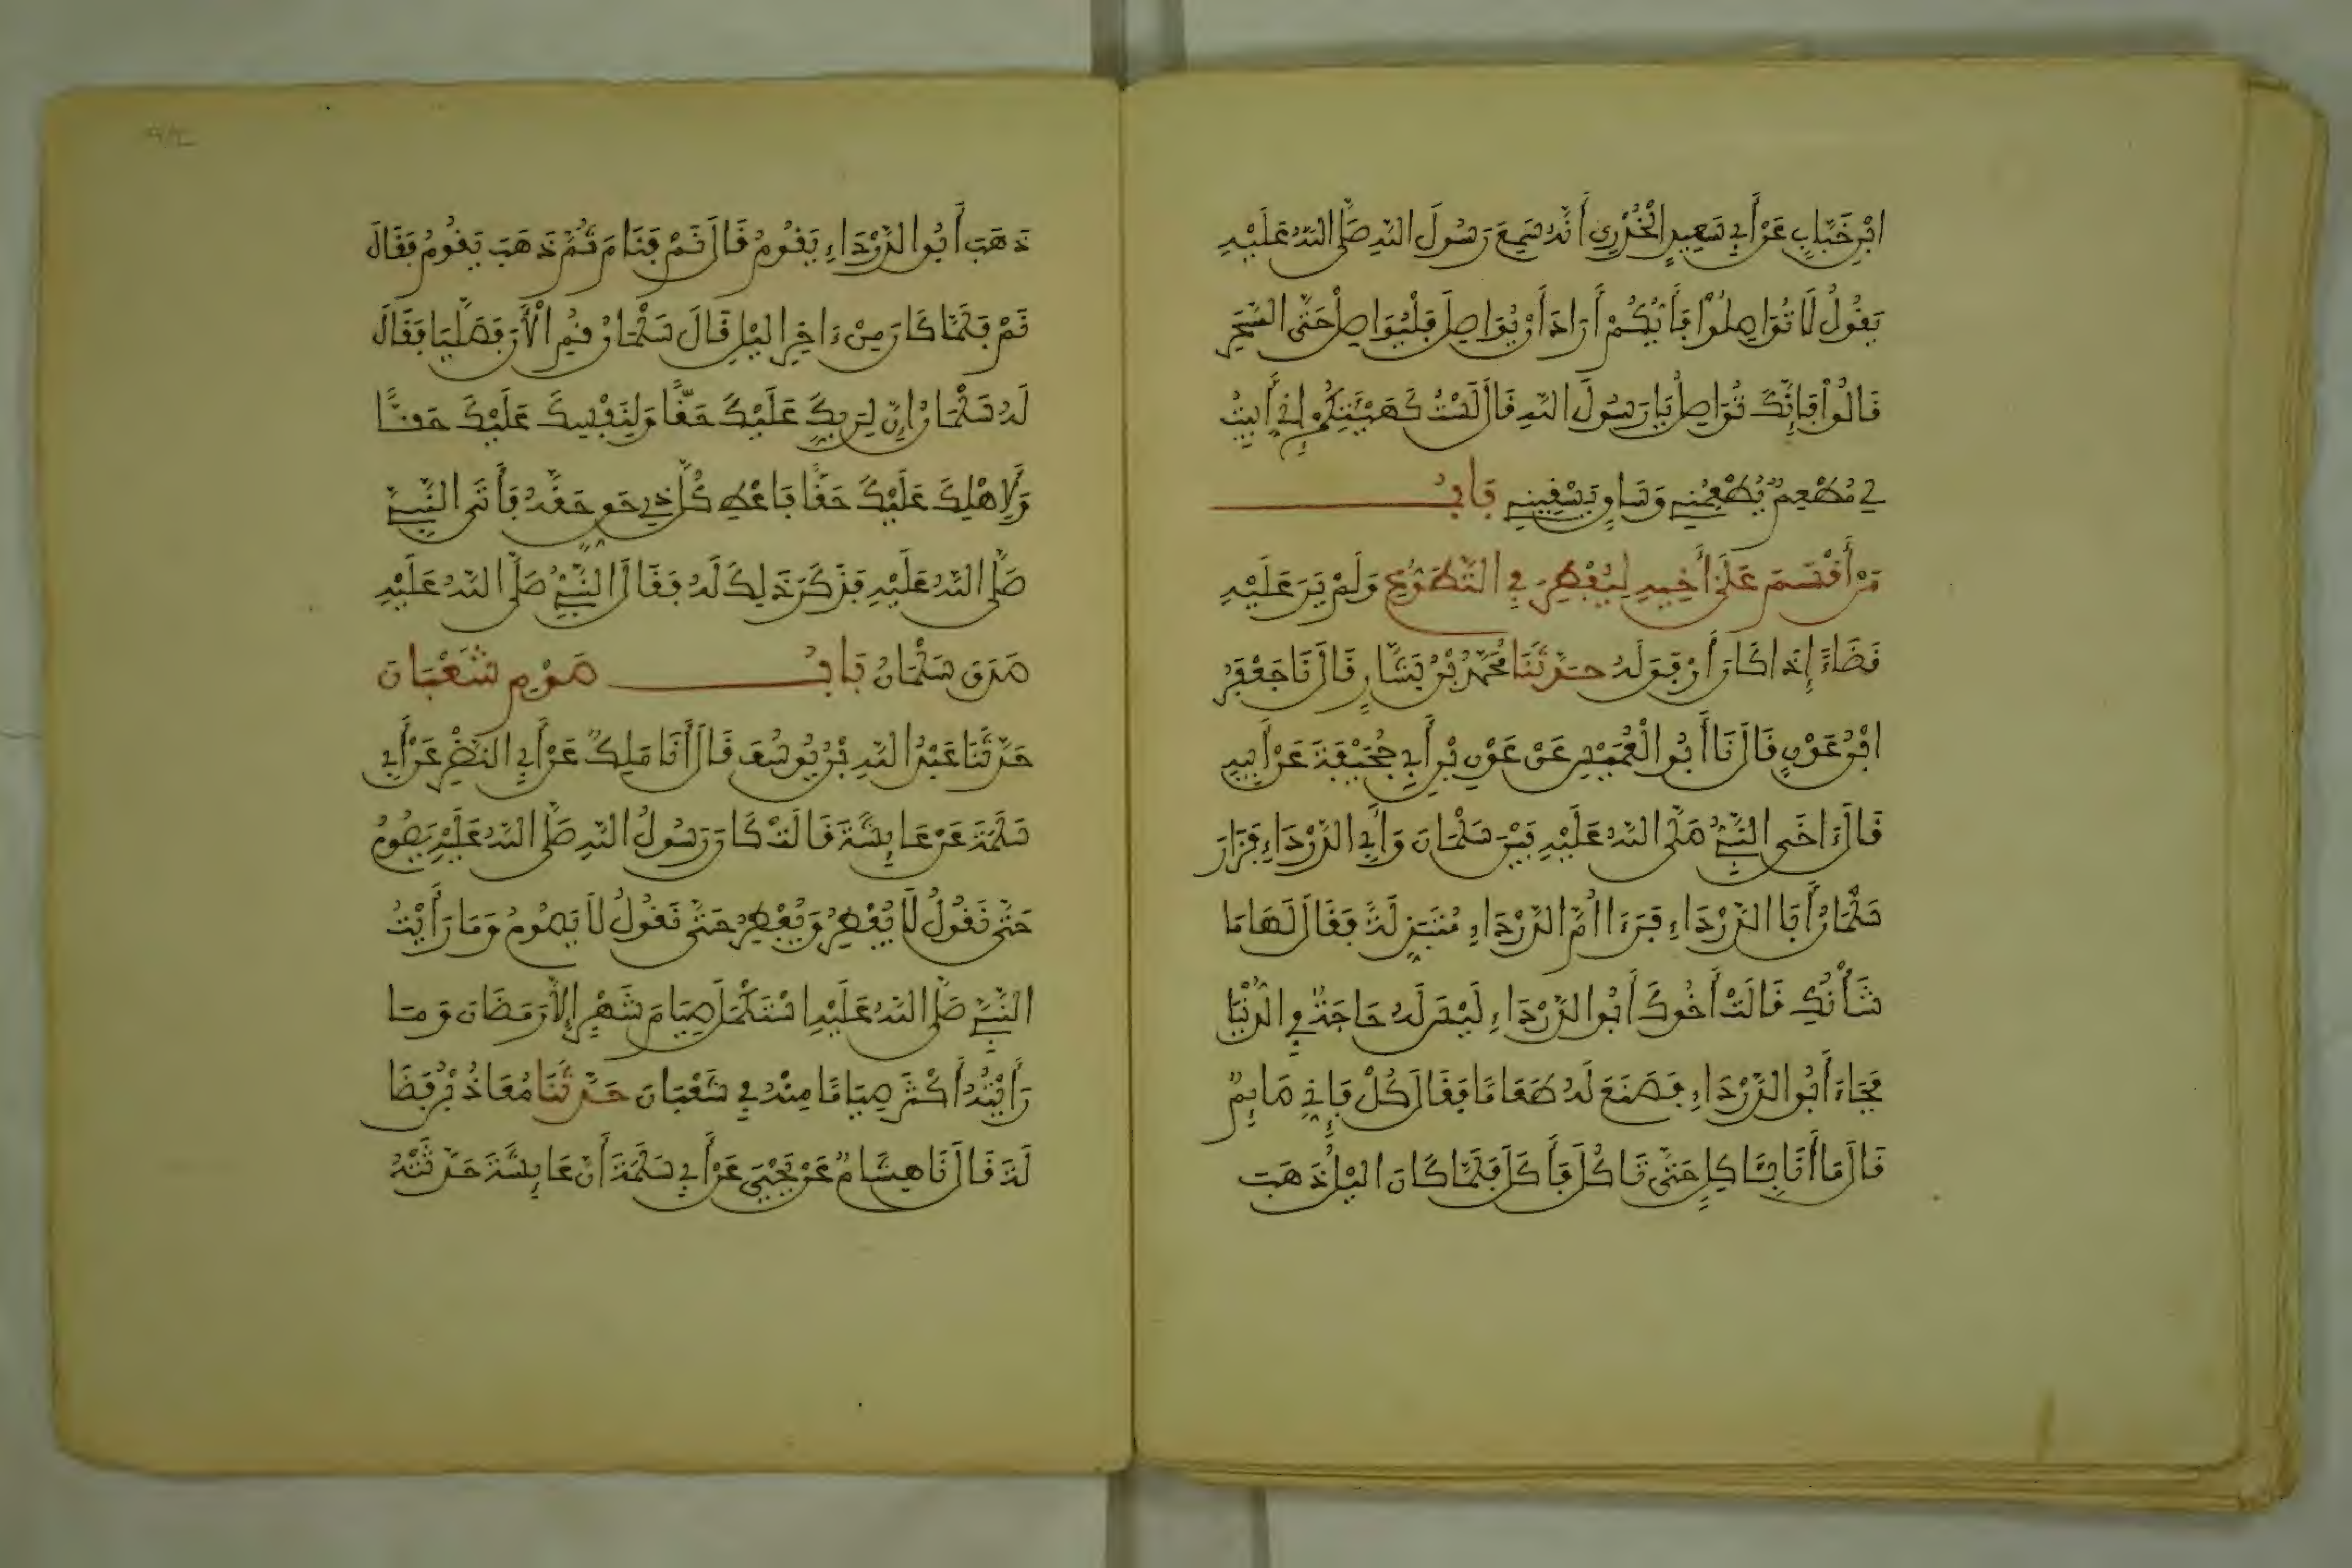 ابْنِ خَبَّابٍ عَنْ أَبِي سَعِيدٍ الْخُدْرِي أَنَّهُ سَمِعَ رَسُولَ اللَّهِ صَلَّى اللَّهُ عَلَيْهِ
يَقُولُ لَا تُوَاصِلُوا فَأَيُّكُمْ أَرَادَ أَنْ يُوَاصِلَ فَلْيُوَاصِلْ حَتَّى السَّحَرِ
قَالُوا فَإِنَّكَ تُوَاصِلُ يَا رَسُولَ اللَّهِ قَالَ لَسْتُ كَهَيْئَتِكُمْ إِنِّي أَبِيتُ
لِي مُطْعِمٌ يُطْعِمُنِي وَسَاقٍ يَسْقِينِي بَابُ
مَنْ أَقْسَمَ عَلَى أَخِيهِ لِيُفْطِرَ فِي التَّطَوُّعِ وَلَمْ يَرَ عَلَيْهِ
قَضَاءً إِذَا كَانَ أَوْفَقَ لَهُ حَدَّثَنَا مُحَمَّدُ بْنُ بَشَّارٍ قَالَ نَا جَعْفَرُ
ابْنُ عَوْنٍ قَالَ نَا أَبُو الْعُمَيْسِ عَنْ عَوْنِ بْنِ أَبِي جُحَيْفَةَ عَنْ أَبِيهِ
قَالَ ءَاخَى النَّبِيُّ صَلَّى اللَّهُ عَلَيْهِ بَيْنَ سَلْمَانَ وَأَبِي الدَّرْدَاءِ فَزَارَ
سَلْمَانُ أَبَا الدَّرْدَاءِ فَرَءَا أُمَّ الدَّرْدَاءِ مُتَبَذِّلَةً فَقَالَ لَهَا مَا
شَأْنُكِ قَالَتْ أَخُوكَ أَبُو الدَّرْدَاءِ لَيْسَ لَهُ حَاجَةٌ فِي الدُّنْيَا
فَجَاءَ أَبُو الدَّرْدَاءِ فَصَنَعَ لَهُ طَعَامًا فَقَالَ كُلْ فَإِنِّي صَايِمٌ
قَالَ مَا أَنَا بِـَٔاكِلٍ حَتَّى تَاكُلَ فَأَكَلَ فَلَمَّا كَانَ اليْلُ ذَهَبَ
ذَهَبَ أَبُو الدَّرْدَاءِ يَقُومُ قَالَ نَمْ فَنَامَ ثُمَّ ذَهَبَ يَقُومُ فَقَالَ
نَمْ فَلَمَّا كَانَ مِنْ ءَاخِرِ اليْلِ قَالَ سَلْمَانُ قُمِ الْأَنَ فَصَلَّيَا فَقَالَ
لَهُ سَلْمَانُ إِنَّ لِرَبِّكَ عَلَيْكَ حَقًّا وَلِنَفْسِكَ عَلَيْكَ حَقًّا
وَلِأَهْلِكَ عَلَيْكَ حَقًّا فَاعْطِ كُلَّ ذِي حَقٍّ حَقَّهُ فَأَتَى النَّبِيَّ
صَلَّى اللَّهُ عَلَيْهِ فَذَكَرَ ذَلِكَ لَهُ فَقَالَ النَّبِيُّ صَلَّى اللَّهُ عَلَيْهِ
صَدَقَ سَلْمَانُ بَابُ صَوْمِ شَعْبَانَ
حَدَّثَنَا عَبْدُ اللَّهِ بْنُ يُوسُفَ قَالَ أَنَا مَلِكٌ عَنْ أَبِي النَّضْرِ عَنْ أَبِي
سَلَمَةَ عَنْ عَايِشَةَ قَالَتْ كَانَ رَسُولُ اللَّهِ صَلَّى اللَّهُ عَلَيْهِ يَصُومُ
حَتَّى نَقُولُ لَا يُفْطِرُ وَيُفْطِرُ حَتَّى نَقُولُ لَا يَصُومُ وَمَا رَأَيْتُ
النَّبِيَّ صَلَّى اللَّهُ عَلَيْهِ اسْتَكْمَلَ صِيَامَ شَهْرٍ إِلَّا رَمَضَانَ وَمَا
رَأَيْتُهُ أَكْثَرَ صِيَامًا مِنْهُ فِي شَعْبَانَ حَدَّثَنَا مُعَاذُ بْنُ فَضَا
لَةَ قَالَ نَا هِشَامٌ عَنْ يَحْيَى عَنْ أَبِي سَلَمَةَ أَنَّ عَايِشَةَ حَدَّثَتْهُ